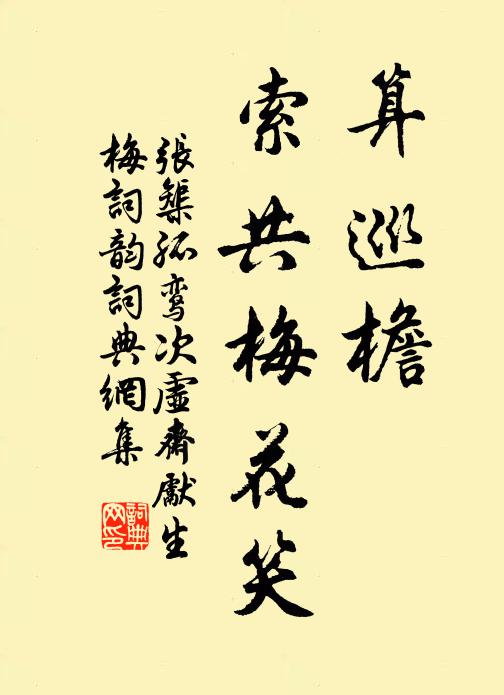 算巡檐
索共梅花笑
張榘孤鸞次虛齋獻生
梅詞韵詞典網集
詞典
网印